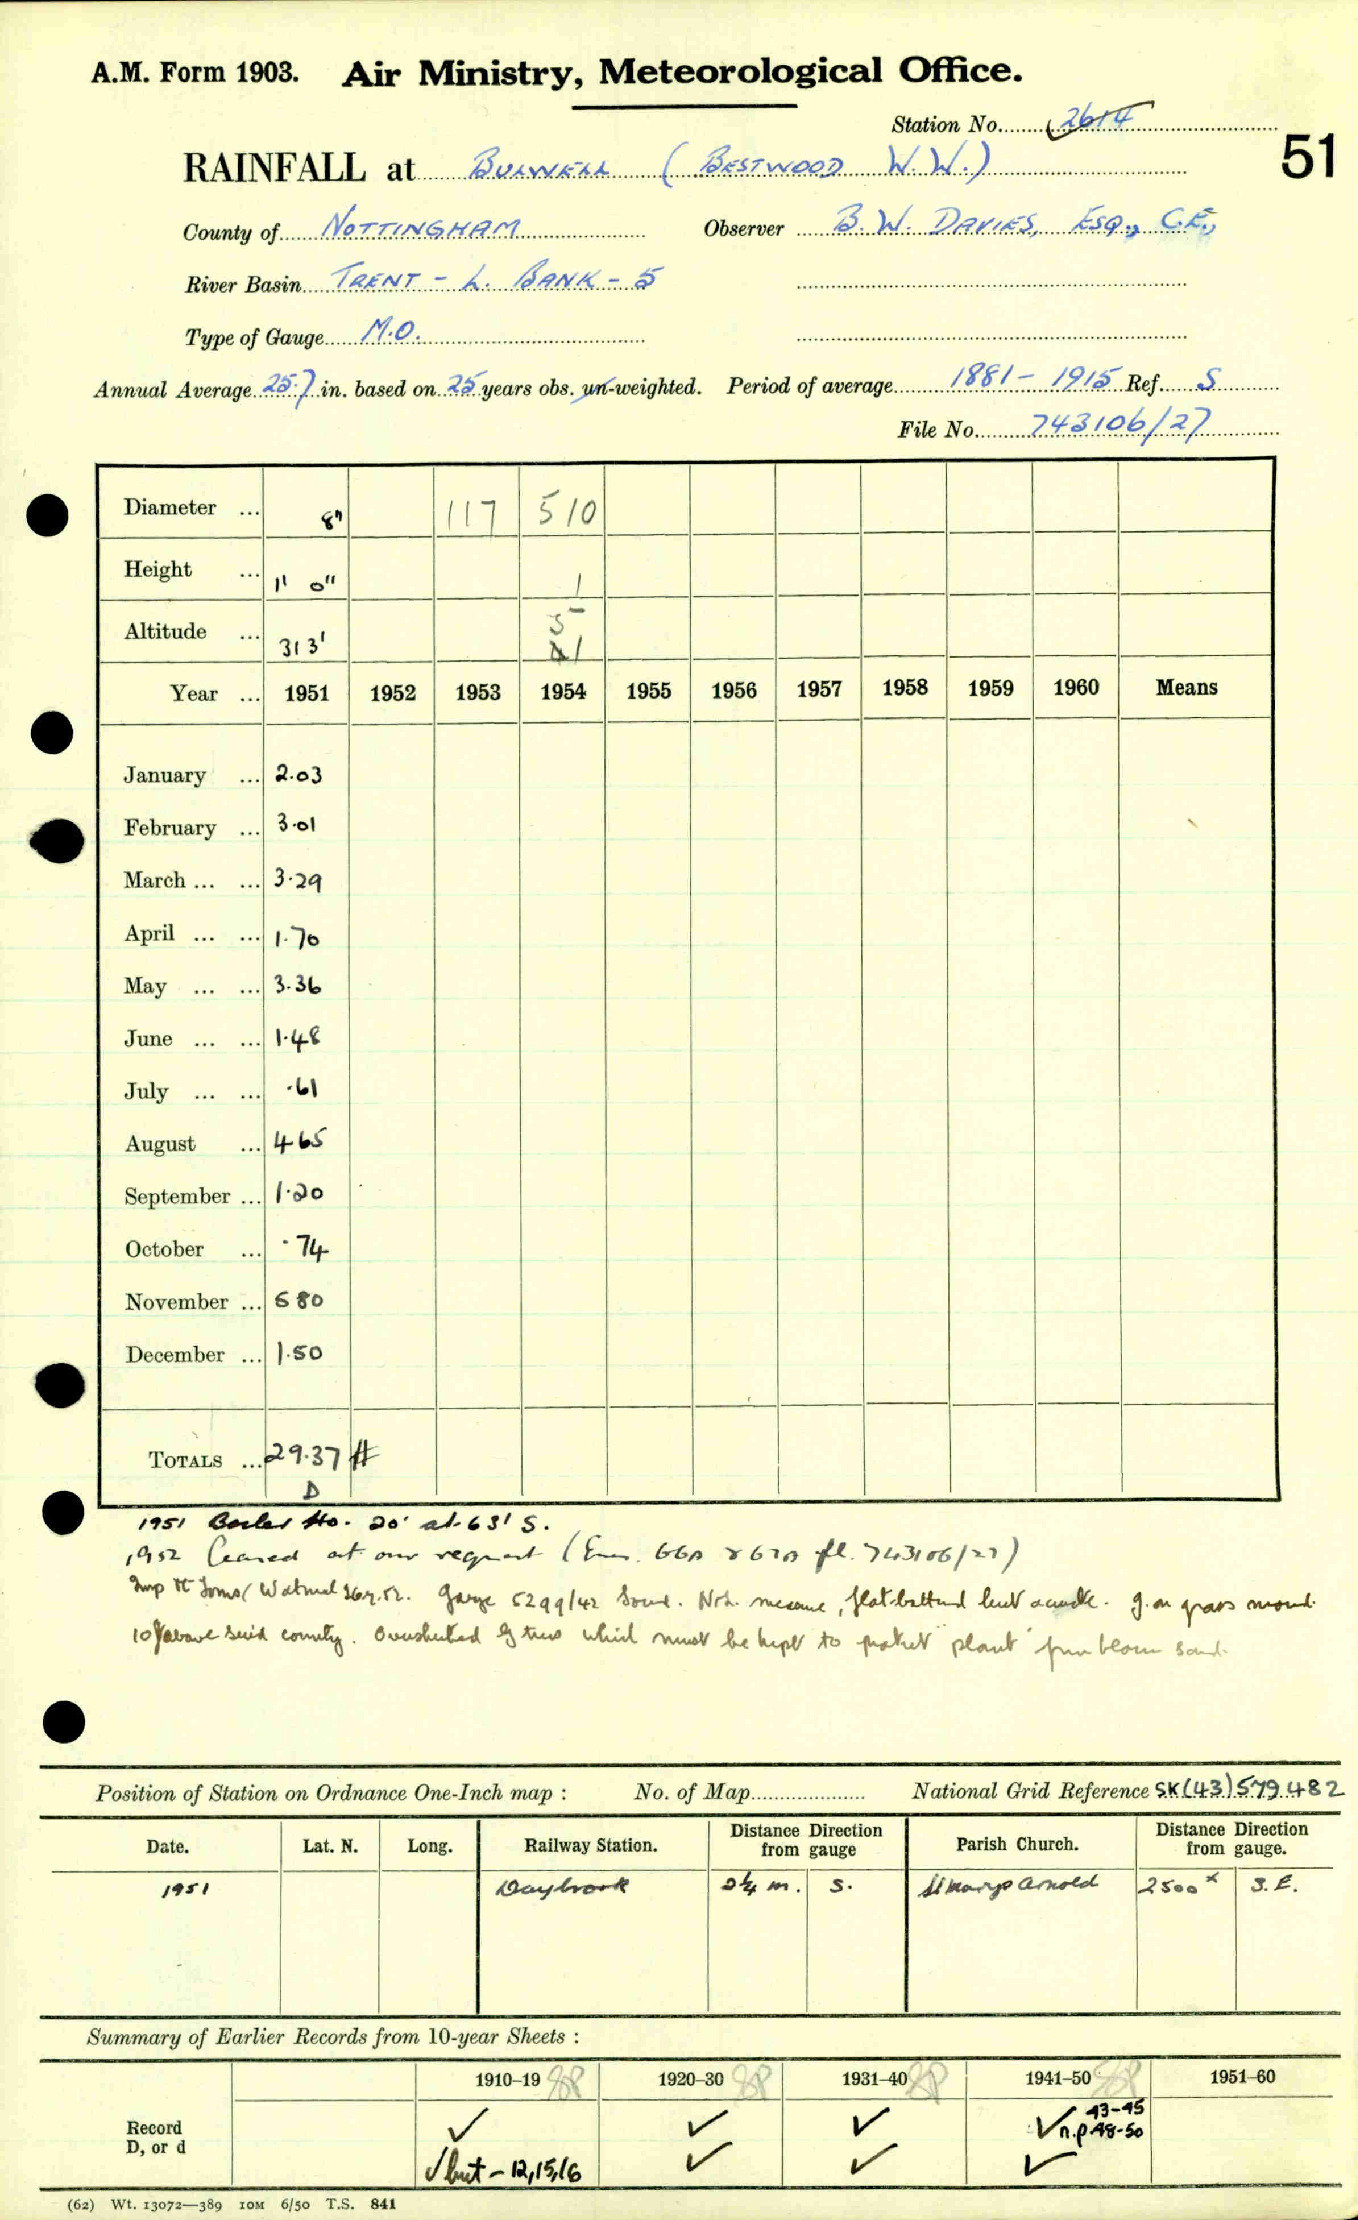 A.M. Form 1903. Air Ministry, Meteorological Office.
Station No. 2614
51
RAINFALL at BULWELL (BESTWOOD W.W.)
County of NOTTINGHAM Observer B.W. DAVIES, ESQ., C.E.,
River Basin TRENT - L. BANK - 5
Type of Gauge M.O.
Annual Average 25.7 in. based on 25 years obs. un-weighted. Period of average 1881 - 1915 Ref. S
File No. 743106/27
Diameter ... 8" 117 510
Height ... 1' 0" 1
Altitude ... 313' 5 41
Year ... 1951 1952 1953 1954 1955 1956 1957 1958 1959 1960 Means
January ... 2.03
February ... 3.01
March ... ... 3.29
April ... ... 1.70
May ... ... 3.36
June ... ... 1.48
July ... ... .61
August ... 4.65
September ... 1.20
October ... .74
November ... 6 80
December ... 1.50
TOTALS ... 29.37 #
D
1951 Boiler Ho. 20' at 63' S.
1952 Ceased at our request ( 743106/27)
Gauge 5299/42 Sound. measure, flat-bottomed but accurate. g. on grass mound
10' above country. Oversheltered by trees which must be kept to protect plant from blown sand.
Position of Station on Ordnance One-Inch map : No. of Map National Grid Reference SK(43)579482
Date. Lat. N. Long. Railway Station. Distance from gauge Direction Parish Church. Distance from gauge. Direction
1951 Daybrook 2¼ m. S. St Marys Arnold 2500 x S.E.
Summary of Earlier Records from 10-year Sheets :
1910–19 1920–30 1931–40 1941–50 1951–60
Record ✓ ✓ ✓ ✓ 43-45 n.p. 48-50
D, or d ✓ but - 12,15,16 ✓ ✓ ✓
(62) Wt. 13072—389 10M 6/50 T.S. 841